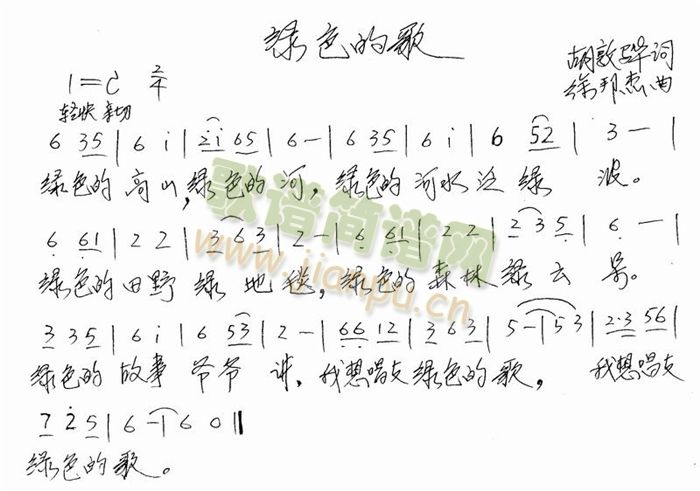 绿色的歌
1=C 2/4
胡敦骅词
徐邦杰曲
轻快 亲切
6 35 | 6 i | 2i 65 | 6 - | 6 35 | 6 i | 6 52 | 3 - |
绿色的高山,绿色的河,绿色的河水泛绿波。
6 61 | 2 2 | 3 6 3 | 2 - | 6 61 | 2 2 | 2 3 5 | 6 - |
绿色的田野绿地毯,绿色的森林绿云朵。
3 35 | 6 i | 6 53 | 2 - | 66 12 | 3 6 3 | 5 - | 5 3 | 2·3 56 |
绿色的故事爷爷讲,我想唱支绿色的歌, 我想唱支
7 2 5 | 6 - | 6 0 ‖
绿色的歌。
歌谱简谱网
www.jianpu.cn